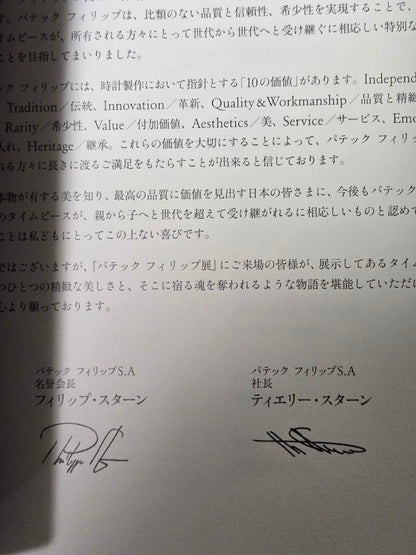 す。パテック フィリップは、比類のない品質と信頼性、希少性を実現することで、
イムピースが、所有される方々にとって世代から世代へと受け継ぐに相応しい特別な
ことを目指してまいりました。
ック フィリップには、時計製作において指針とする「10の価値」があります。Independ
Tradition／伝統、Innovation／革新、Quality＆Workmanship／品質と精緻
Rarity／希少性、Value／付加価値、Aesthetics／美、Service／サービス、Emo
入れ、Heritage／継承。これらの価値を大切にすることによって、パテック フィリッ
れる方々に長きに渡るご満足をもたらすことが出来ると信じております。
本物が有する美を知り、最高の品質に価値を見出す日本の皆さまに、今後もパテック
のタイムピースが、親から子へと世代を超えて受け継がれるに相応しいものと認めて
ことは私どもにとってこの上ない喜びです。
ではございますが、『パテック フィリップ展』にご来場の皆様が、展示してあるタイム
つひとつの精緻な美しさと、そこに宿る魂を奪われるような物語を堪能していただけ
心より願っております。
パテック フィリップS.A
名誉会長
フィリップ・スターン
パテック フィリップS.A
社長
ティエリー・スターン